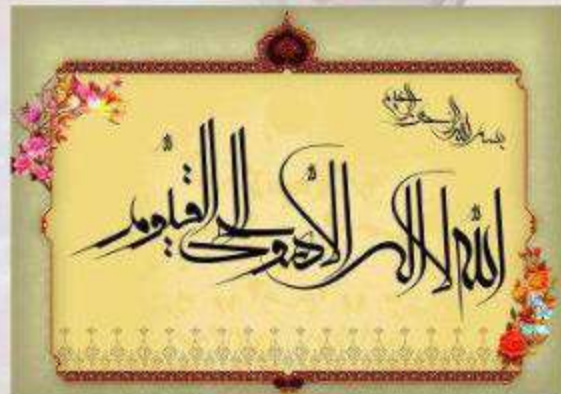 بسم الله الرحمن الرحيم
الله لا اله الا هو الحی القیوم